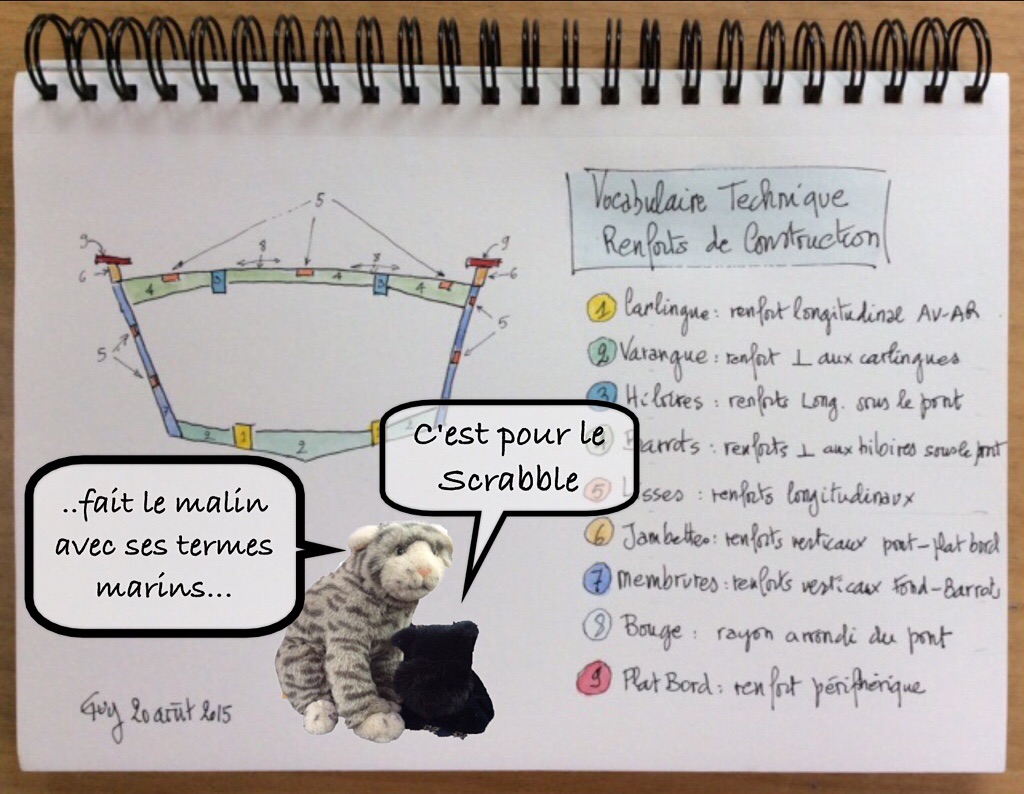 Vocabulaire Technique
Renforts de Construction
5
9
8
8
9
6
4
3
4
3
4
6
5
5
7
2
1
2
1
2
1 Carlingue : renfort longitudinal AV-AR
2 Varangue : renfort ⊥ aux carlingues
3 Hiloires : renforts Long. sous le pont
4 Barrots : renforts ⊥ aux hiloires sous le pont
5 Lisses : renforts longitudinaux
6 Jambettes : renforts verticaux pont-plat bord
7 Membrures : renforts verticaux Fond-Barrots
8 Bouge : rayon arrondi du pont
9 Plat Bord : renfort périphérique
..fait le malin
avec ses termes
marins...
C'est pour le
Scrabble
Guy 20 août 2015